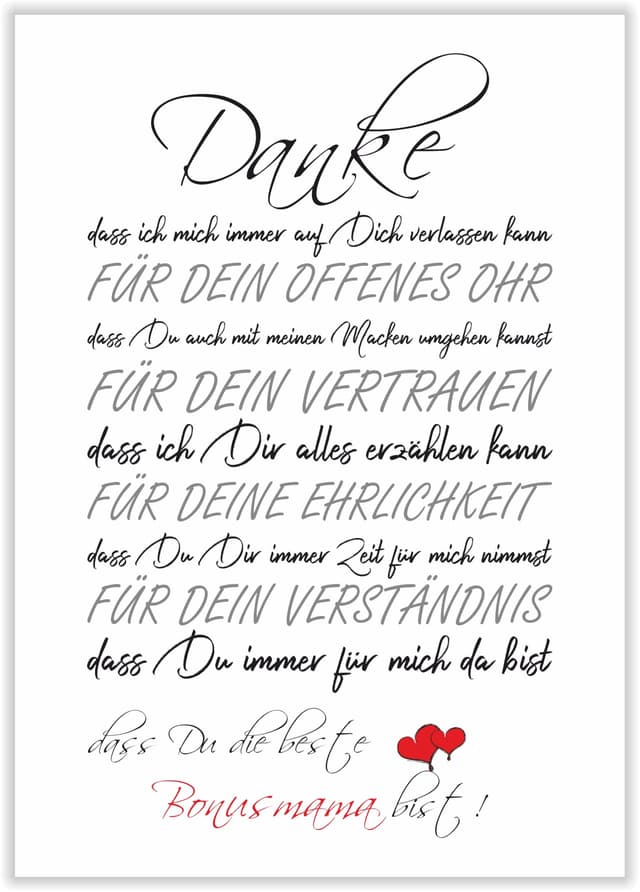 Danke
dass ich mich immer auf Dich verlassen kann
FÜR DEIN OFFENES OHR
dass Du auch mit meinen Macken umgehen kannst
FÜR DEIN VERTRAUEN
dass ich Dir alles erzählen kann
FÜR DEINE EHRLICHKEIT
dass Du Dir immer Zeit für mich nimmst
FÜR DEIN VERSTÄNDNIS
dass Du immer für mich da bist
dass Du die beste
Bonusmama bist !